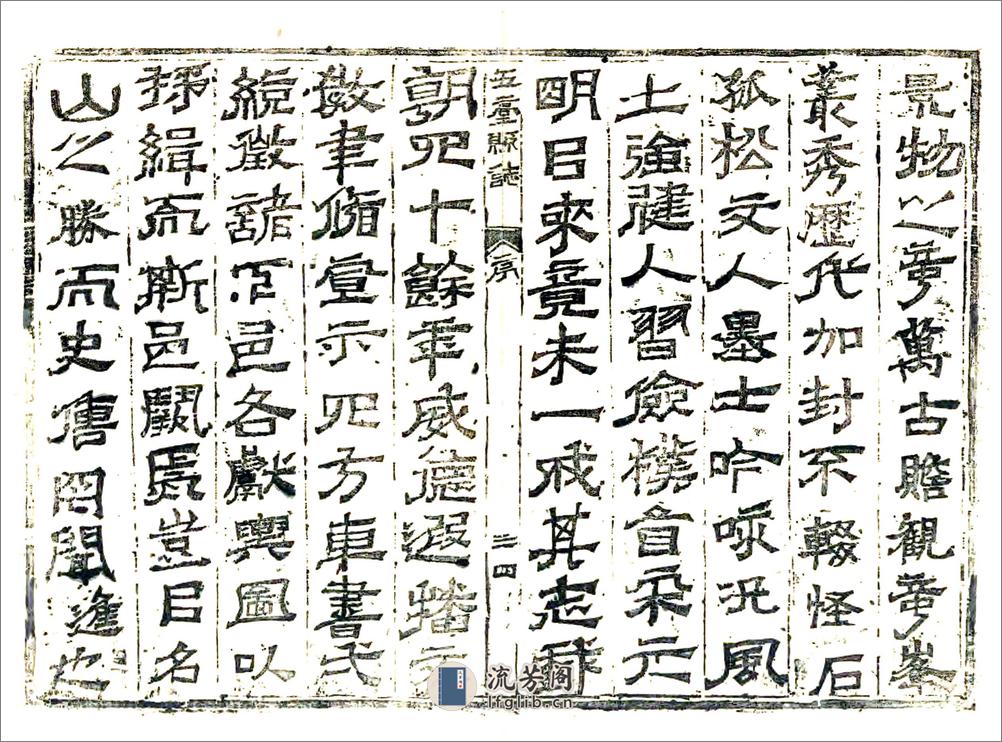 景物之竒萬古瞻觀竒峯
叢秀歷代加封不輟怪石
孤松文人墨士吟咏況風
土強健人習儉樸宋元
明㠯來竟未一成其志我
五臺縣誌 序 三四
朝四十餘年威德遐播文
敎聿脩宣示四方車書弌
統徵諸下邑各獻輿圖以
採緝而斯邑闕焉豈㠯名
山之勝而史罔聞進也
流芳閣
lfglib.cn